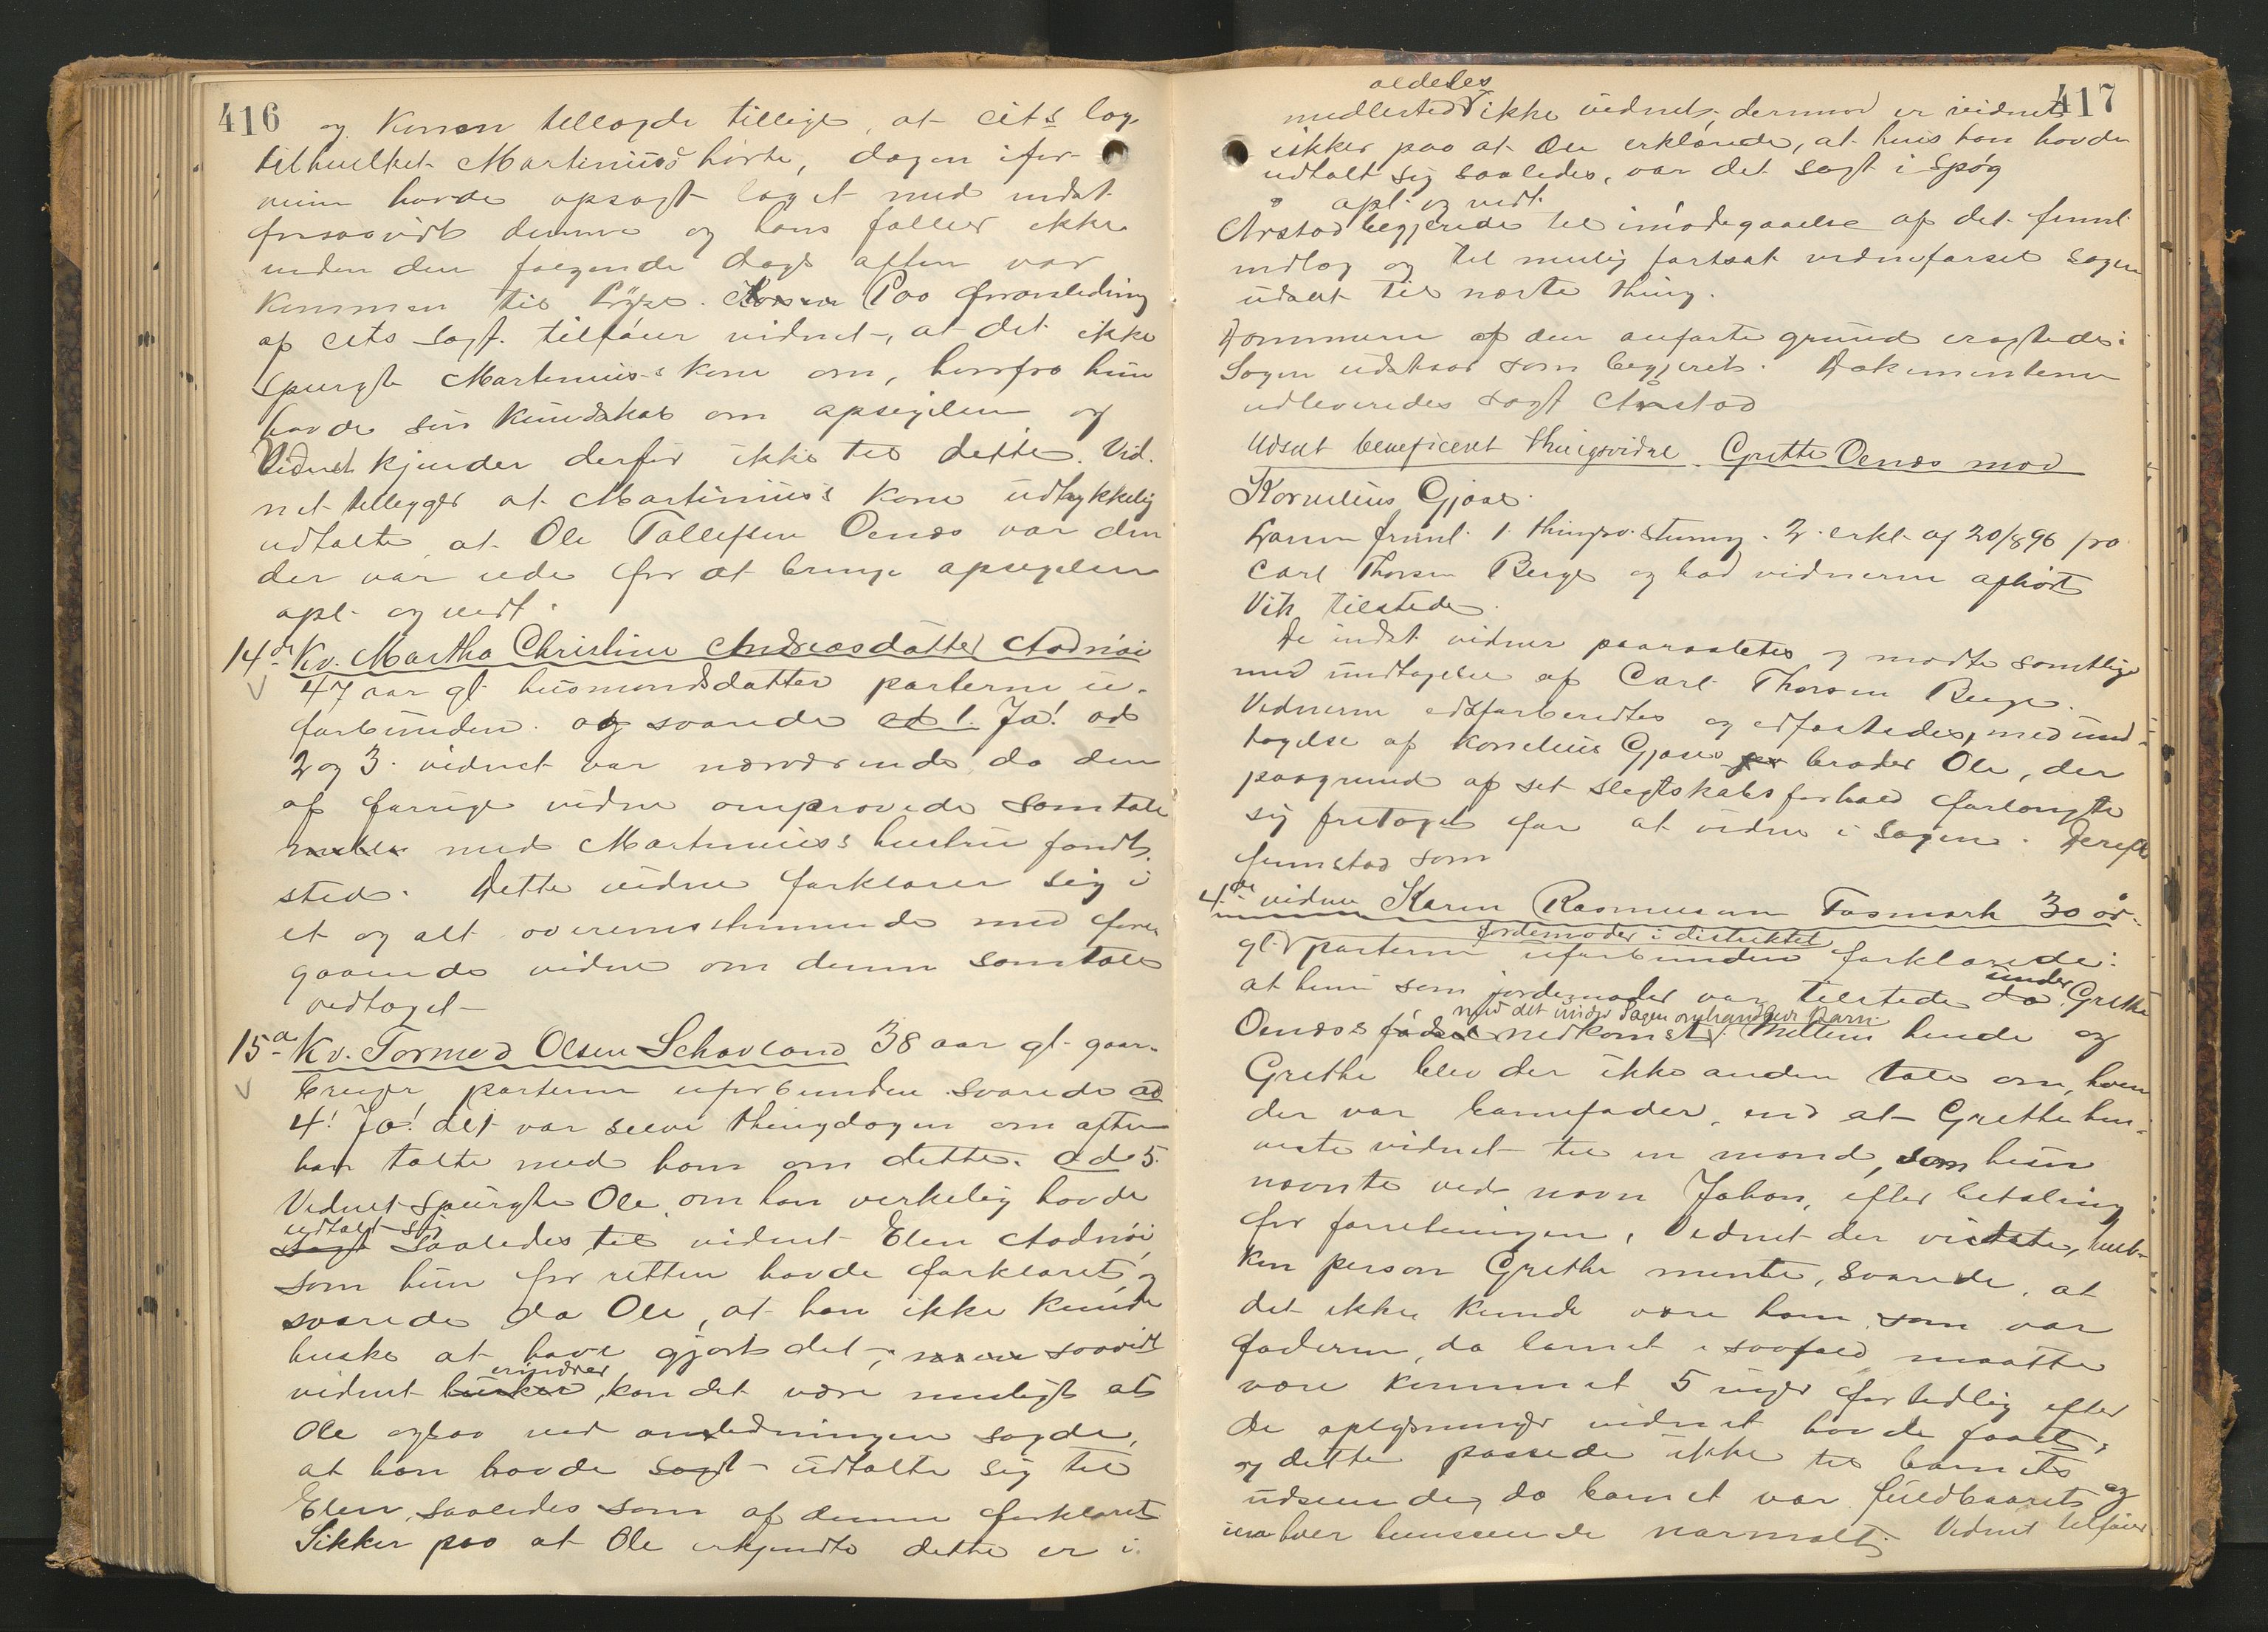 416
og konen tillagde tillige, at cits lag
tilhvilket Martinius's hørte, dagen ifor-
veien havde opsagt laget med indst.
forsaavidt denne og hans fæller ikke
inden den følgende dags aften var
kommen til Paa foranledning
af cits sagf. tilføier vidnet, at det ikke
spurgte Martinius's kone om, hvorfra hun
havde sin kundskab om opsigelsen og
Vidnet kjender derfor ikke til dette. Vid-
net tillægger at Martinius's kone udtrykkelig
udtalte, at Ole Tollefsen Oenæs var den
der var ude for at bringe opsigelsen
opl. og vedt.
14de Kv. Martha Christine Andreasdatter Aadnøi
47 aar gl. husmandsdatter parterne u-
forbunden. og svarede ad 1. Ja! ad
2 og 3. vidnet var nærværende da den
af forrige vidne omprovede samtale
med Martinius's hustru fandt
sted. Dette vidne forklarer sig i
et og alt overensstemmende med fore-
gaaende vidne om denne samtale
vedtaget
15de Kv. Tormod Olsen Schavland 38 aar gl. gaar-
bruger, parterne uforbunden svarede ad
4! Ja! det var selve thingdagen om aften
han talte med ham om dette. ad 5.
Vidnet spurgte Ole, om han virkelig havde
udtalt sig
sagt saaledes til vidnet Elen Aadnøi,
som hun for retten havde forklaret, og
svarede da Ole, at han ikke kunde
huske at have gjort det; saavidt
erindrer
vidnet husker, kan det være muligt at
Ole ogsaa ved anledningen sagde,
at han havde sagt udtalte sig til
Elen, saaledes som af denne forklaret
Sikker paa at Ole erkjendte dette er i
417
aldeles
medlertid ikke vidnet; derimod er vidnet
sikker paa at Ole erklærede, at hvis han havde
udtalt sig saaledes, var det sagt i spøg
opl. og vedt.
Arstad begjerede til imødegaaelse af det freml.
indlæg og til mulig fortsat vidneførsel sagen
udsat til næste thing.
Dommeren af den anførte grund eragtede:
Sagen udstaar som begjeret. Dokumenterne
udleveredes sagf Arstad
Udsat beneficeret thingsvidne Grette Oenæs mod
Kornelius Gjoae.
freml. 1. thingsv. stevning. 2. erkl. af 20/8 96 fra
Carl Thorsen Berge og bad vidnerne afhørt
Vik tilstede.
De indst. vidner paaraabtes og mødte samtlige
med undtagelse af Carl Thorsen Berge.
Vidnerne edsforberedtes og edfæstedes, med und-
tagelse af Kornelius Gjoaes broder Ole, der
paagrund af sit slegtskabsforhold forlangte
sig fritaget for at vidne i sagen. Derefter
fremstod som
4de vidne Karen Rasmussen Tasmark 30 år
jordemoder i distriktet
gl. parterne uforbunden forklarede:
under
at hun som jordemoder var tilstede da Grethe
med det under sagen omhandlede barn.
Oenæs's fødsel nedkomst. Mellem hende og
Grethe blev der ikke anden tale om, hvem
der var barnefader, end at Grethe hen-
viste vidnet til en mand, som hun
nævnte ved navn Johan, efter betaling
for forretningen. Vidnet der vidste, hvil-
ken person Grethe mente, svarede, at
det ikke kunde være ham som var
faderen, da barnet i saafald maatte
være kommet 5 uger for tidlig efter
de oplysninger vidnet havde faaet,
og dette passede ikke til barnets
udseende, da barnet var fuldbaaret og
i enhver henseende normalt. Vidnet tilføier